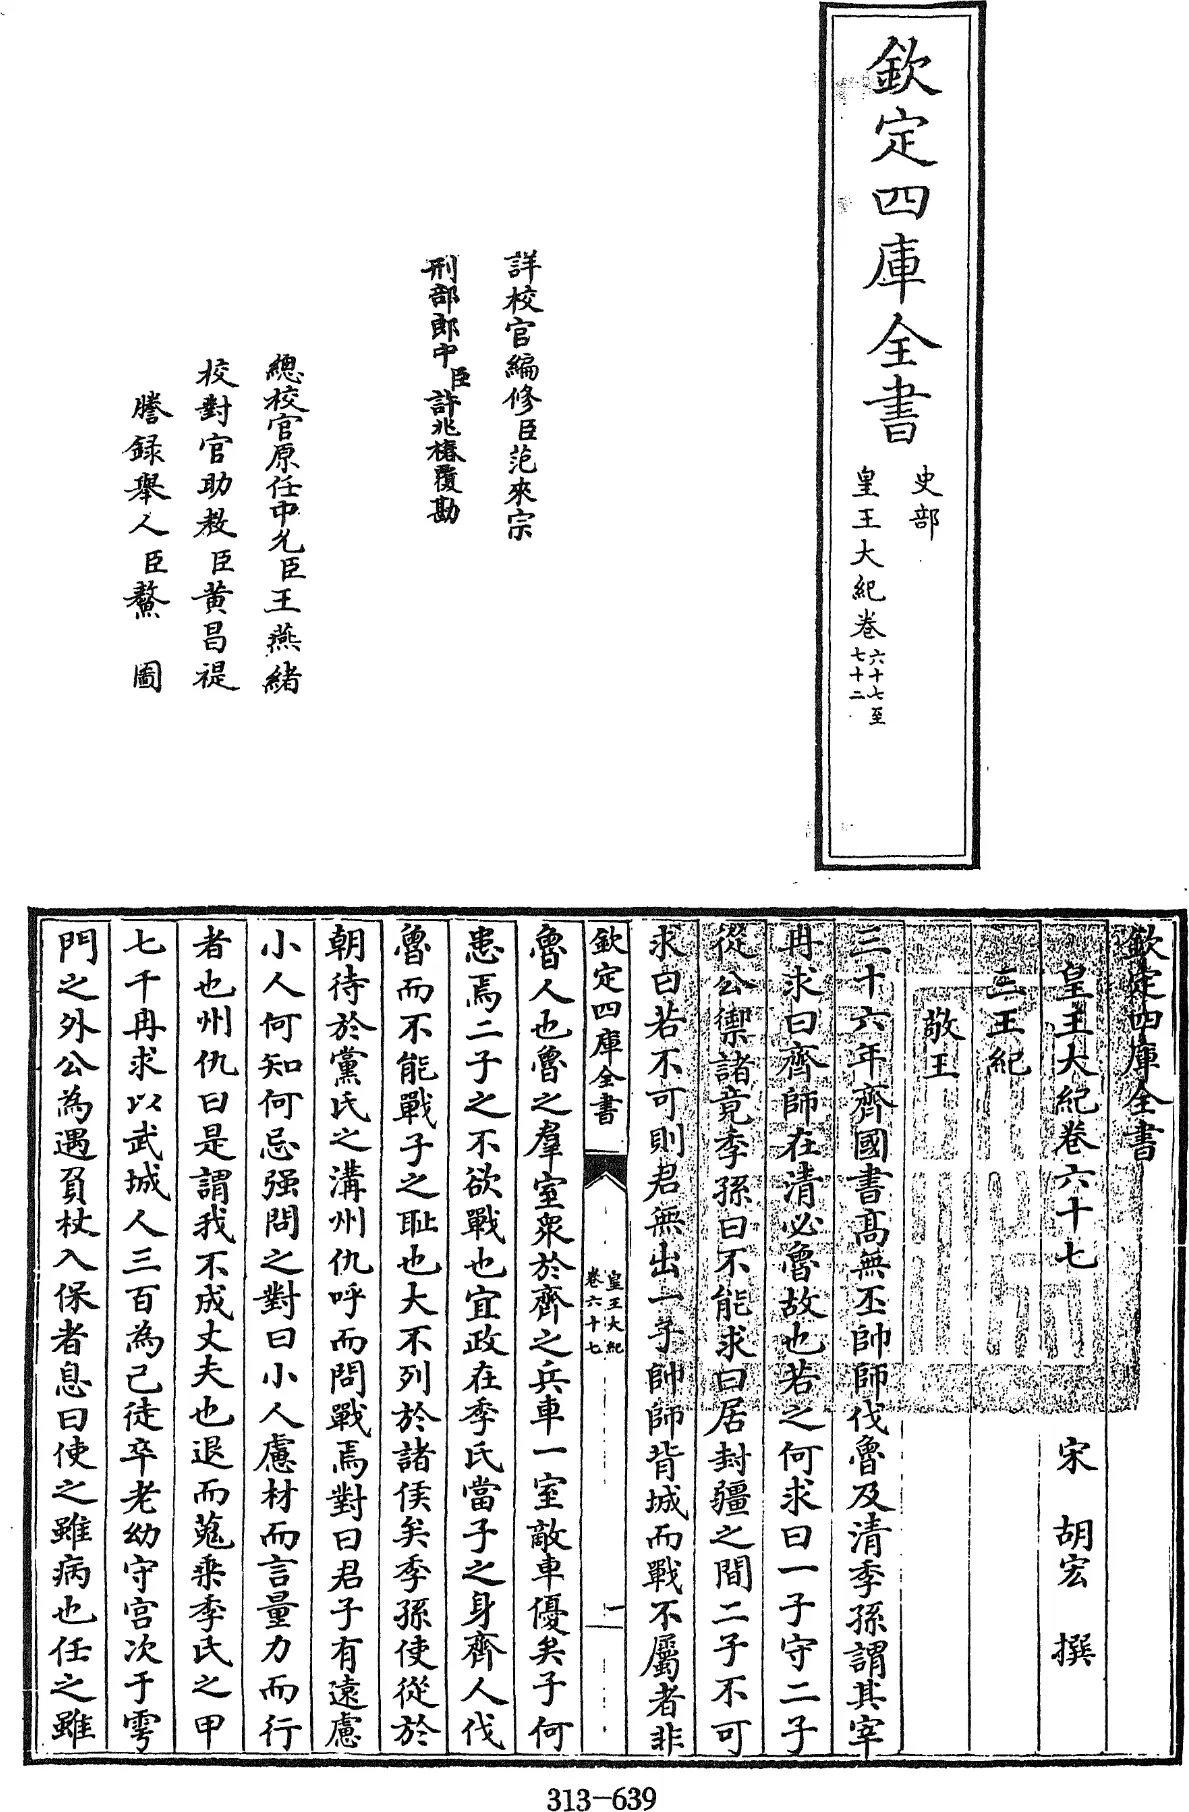 欽定四庫全書
史部
皇王大紀卷六十七至七十二
詳校官編修臣范來宗
刑部郎中臣許兆椿覆勘
總校官原任中允臣王燕緒
校對官助教臣黃昌禔
謄錄舉人臣鰲圖
欽定四庫全書
皇王大紀卷六十七
宋 胡宏 撰
三王紀
敬王
三十六年齊國書髙無丕帥師伐魯及清季孫謂其宰
冉求曰齊師在清必魯故也若之何求曰一子守二子
從公禦諸竟季孫曰不能求曰居封疆之間二子不可
求曰若不可則君無出一子帥師背城而戰不屬者非
欽定四庫全書
皇王大紀
卷六十七
一
魯人也魯之羣室衆於齊之兵車一室敵車優矣子何
患焉二子之不欲戰也宜政在季氏當子之身齊人伐
魯而不能戰子之耻也大不列於諸侯矣季孫使從於
朝待於黨氏之溝州仇呼而問戰焉對曰君子有遠慮
小人何知何忌强問之對曰小人慮材而言量力而行
者也州仇曰是謂我不成丈夫也退而蒐乗季氏之甲
七千冉求以武城人三百為己徒卒老幼守宮次于雩
門之外公為遇負杖入保者息曰使之雖病也任之雖
313-639